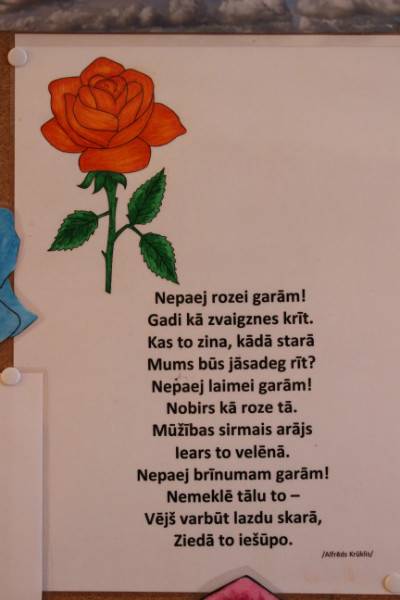 Nepaej rozei garām!
Gadi kā zvaigznes krīt.
Kas to zina, kādā starā
Mums būs jāsadeg rīt?
Nepaej laimei garām!
Nobirs kā roze tā.
Mūžības sirmais arājs
Iears to velēnā.
Nepaej brīnumam garām!
Nemeklē tālu to –
Vējš varbūt lazdu skarā,
Ziedā to iešūpo.
/Alfrēds Krūklis/